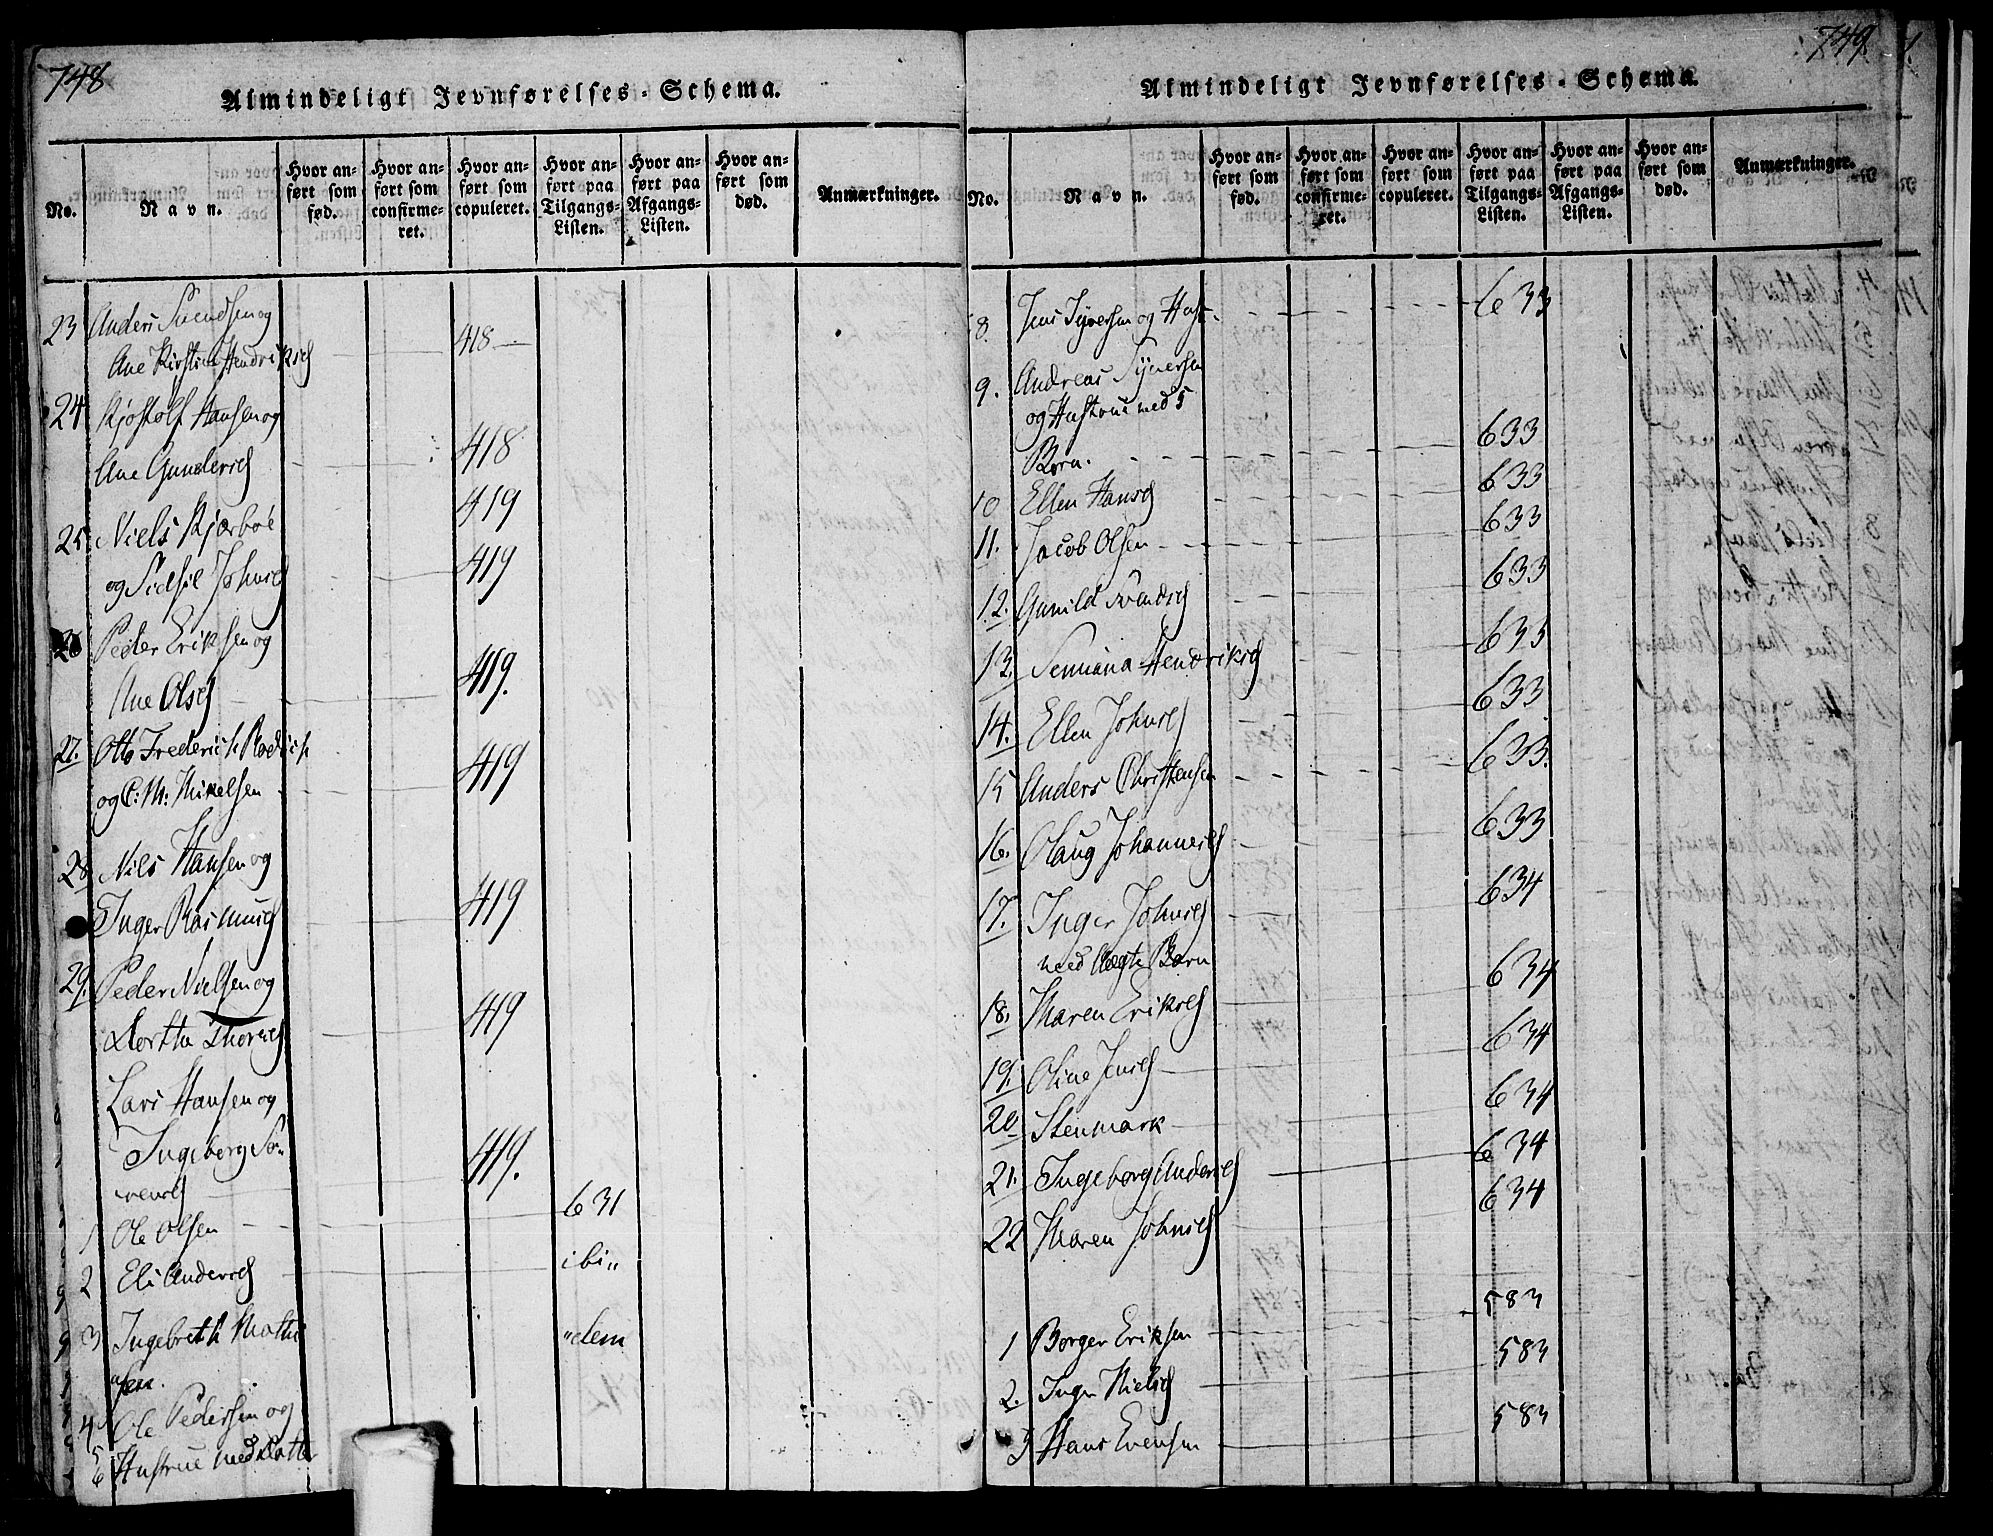 748
Almindeligt Jevnførelses-Schema.
No.
Navn.
Hvor an-
ført som
fød.
Hvor an-
ført som
confirme-
ret.
Hvor an-
ført som
copuleret.
Hvor an-
ført paa
Tilgangs-
Listen.
Hvor an-
ført paa
Afgangs-
Listen.
Hvor an-
ført som
død.
Anmærkninger.
23 Anders Svendsen og
Ane Kirstine Hendriksd 418
24 Kjostolf Hansen og
Ane Gundersd 418
25 Niels Kjærboe 419
og Sidsel Johnsd 419
26 Peder Eriksen og
Ane Olsd 419.
27. Otto Frederich
og C: M: Mikelsen 419
28 Nils Hansen og
Inger Rasmusd 419
29. Peder Nielsen og
Dorthe Thorsd 419
Lars Hansen og
Ingeborg So-
rensd 419.
1 Ole Olsen 631
2 Eli Andersd ibi„
3 Ingebreth Mathi „dem
„sen.
4 Ole Pedersen og
5 6 Hustrue med Datter
749
Almindeligt Jevnførelses-Schema.
No.
Navn.
Hvor an-
ført som
fød.
Hvor an-
ført som
confirme-
ret.
Hvor an-
ført som
copuleret.
Hvor an-
ført paa
Tilgangs-
Listen.
Hvor an-
ført paa
Afgangs-
Listen.
Hvor an-
ført som
død.
Anmærkninger.
8. Jens Syversen og Hust. 633
9. Andreas Syversen
og Hustrue med 5
Børn. 633
10 Ellen Hansd 633
11. Jacob Olsen 633
12. Gunild Svendsd 633
13. Hendriksd 633
14. Ellen Johnsd 633
15 Anders Christensen 633.
16. Olaug Johannesd 633
17. Inger Johnsd 634
med Børn
18. Maren Eriksd 634
19. Oline Jensd 634
20 Stenmark 634
21. Ingeborg Andersd 634
22 Maren Johnsd 634
1 Borger Eriksen 583
2. Inger Nielsd 583
3 Hans Evensen 583